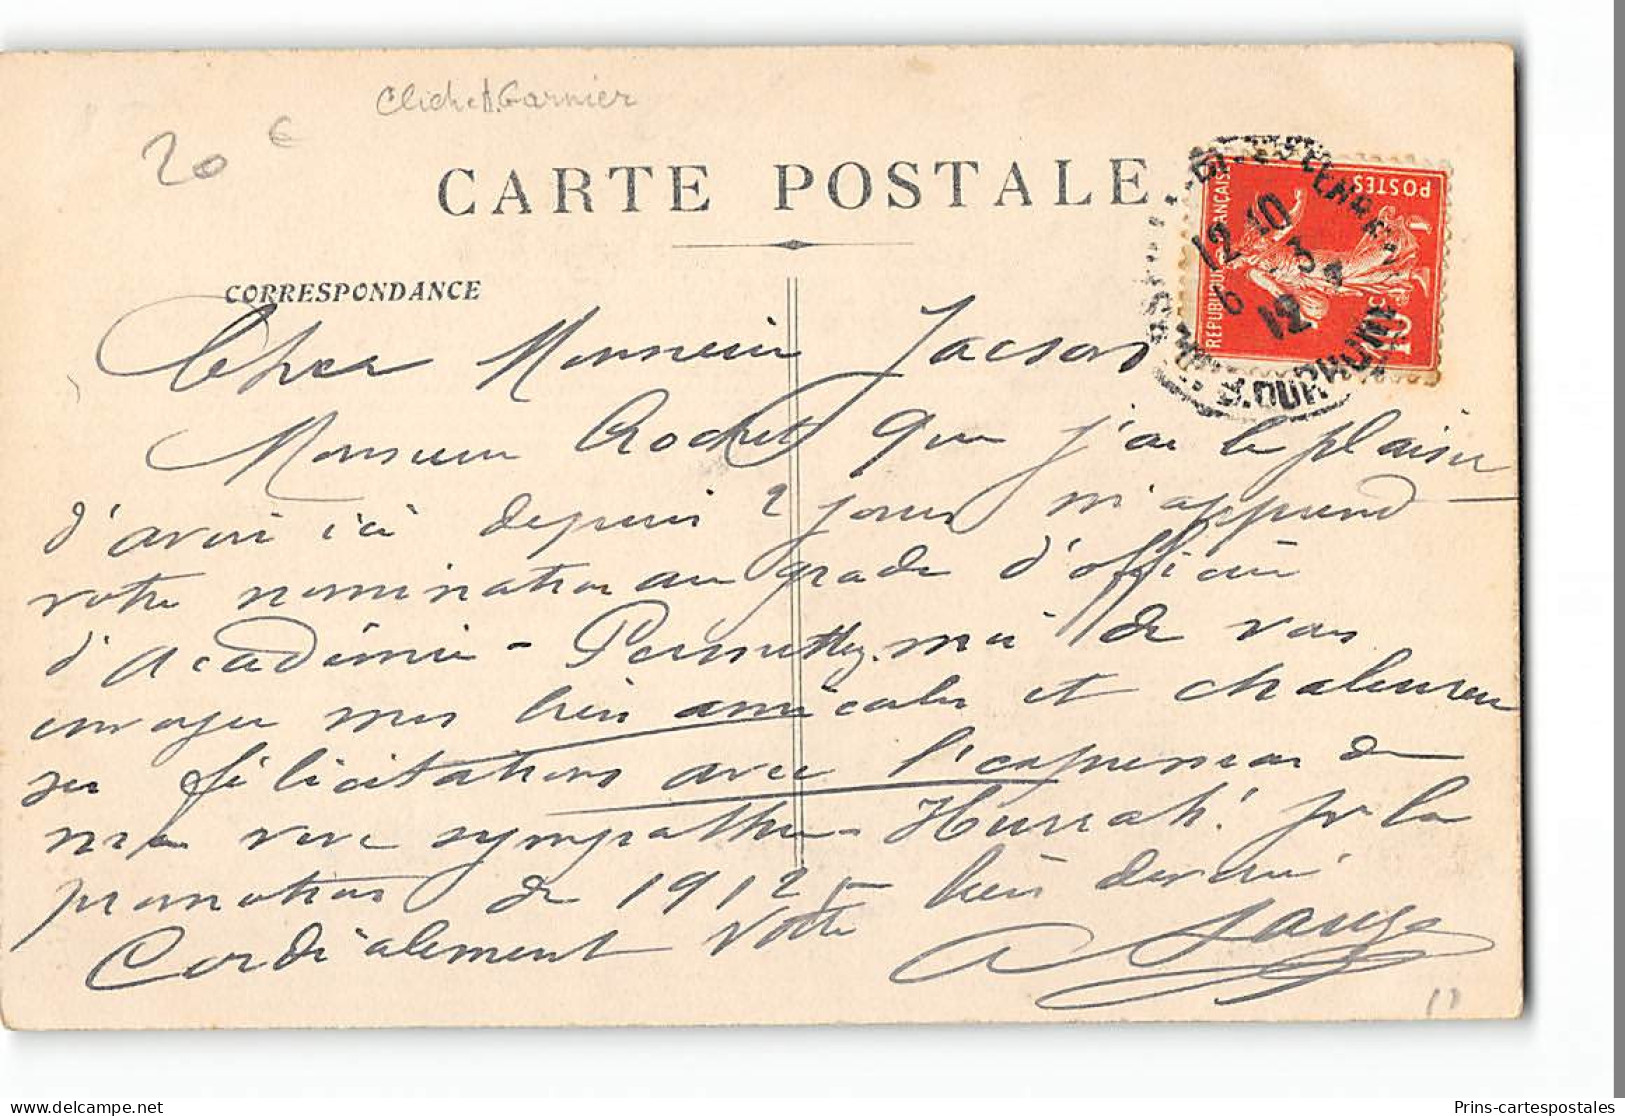 Cliché A. Garnier
20 €
CARTE POSTALE
CORRESPONDANCE
REPUBLIQUE FRANÇAISE
POSTES
10 c
12 10
6 3
12
Cher Monsieur Jacson
Monsieur Crochet que j'ai le plaisir
d'avoir ici depuis 2 jours m'apprend
votre nomination au grade d'officier
d'Académie - Permettez-moi de vous
envoyer mes bien amicales et chaleureu
ses félicitations avec l'expression de
ma vive sympathie - Hurrah! pr la
promotion de 1912 -
Cordialement votre bien dévoué
Prins-cartespostales
delcampe.net